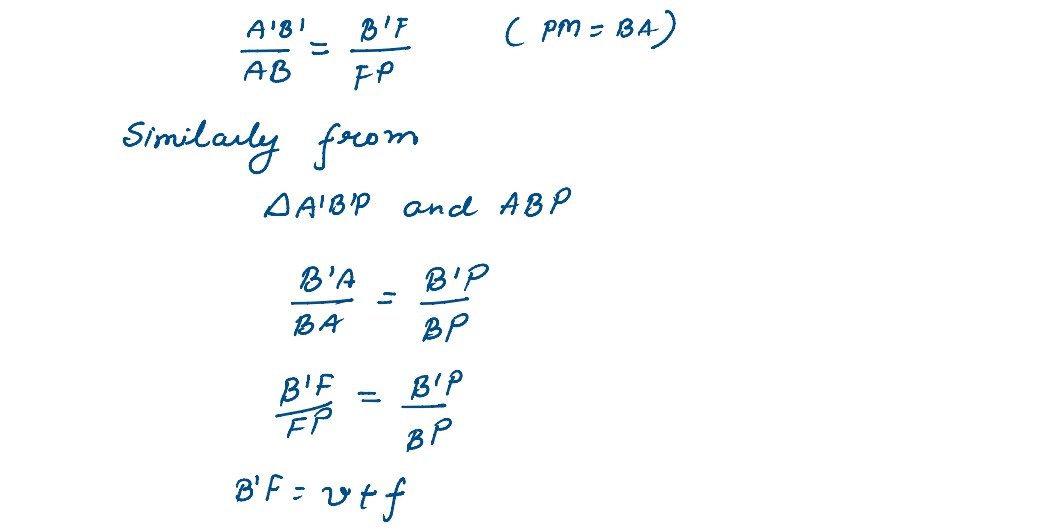 A'B'/AB = B'F/FP (PM = BA)
Similarly from
ΔA'B'P and ABP
B'A/BA = B'P/BP
B'F/FP = B'P/BP
B'F = v+f